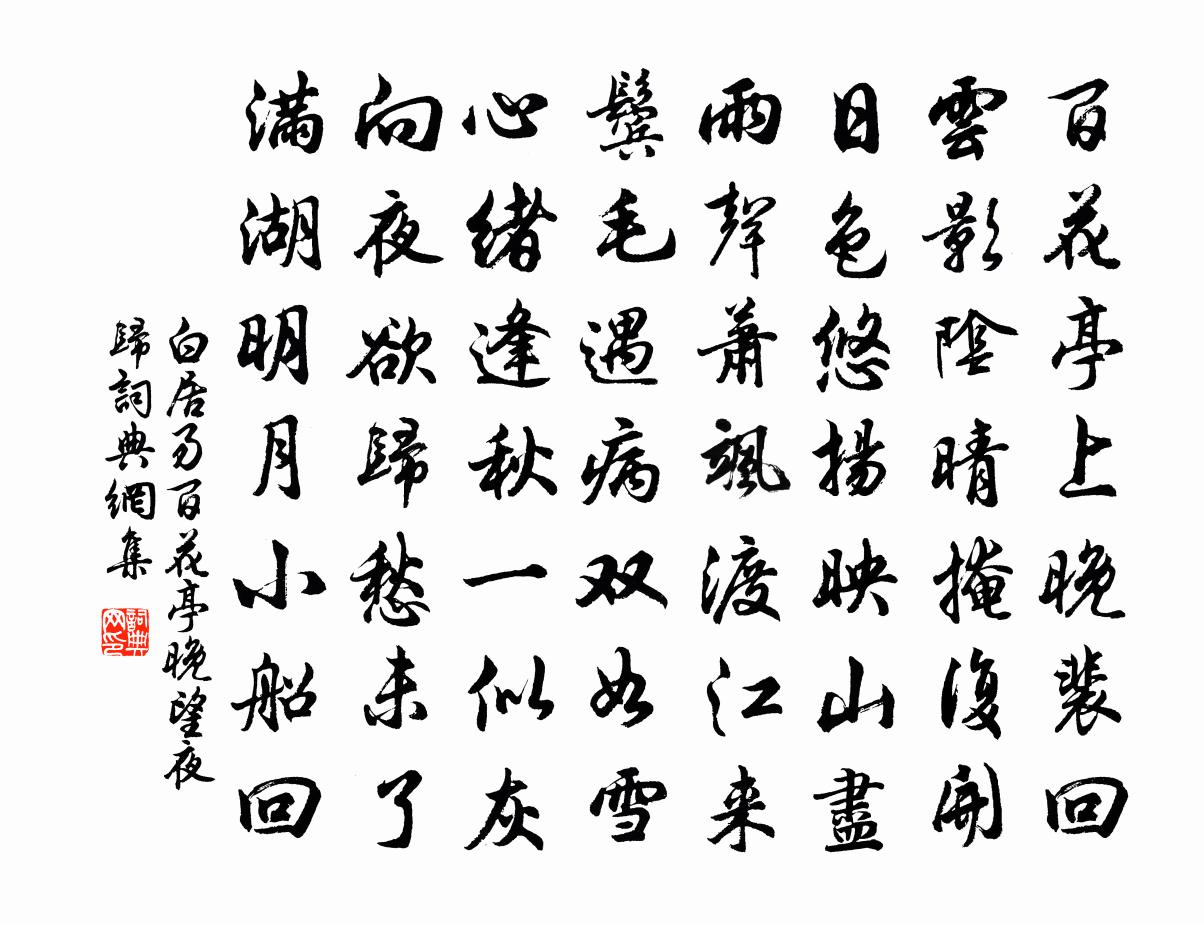 百花亭上晚裴回
雲影陰晴掩復開
日色悠揚映山盡
雨聲蕭颯渡江来
鬓毛遇病双如雪
心绪逢秋一似灰
向夜欲歸愁未了
满湖明月小船回
白居易百花亭晚望夜
歸詞典網集
詞典网印